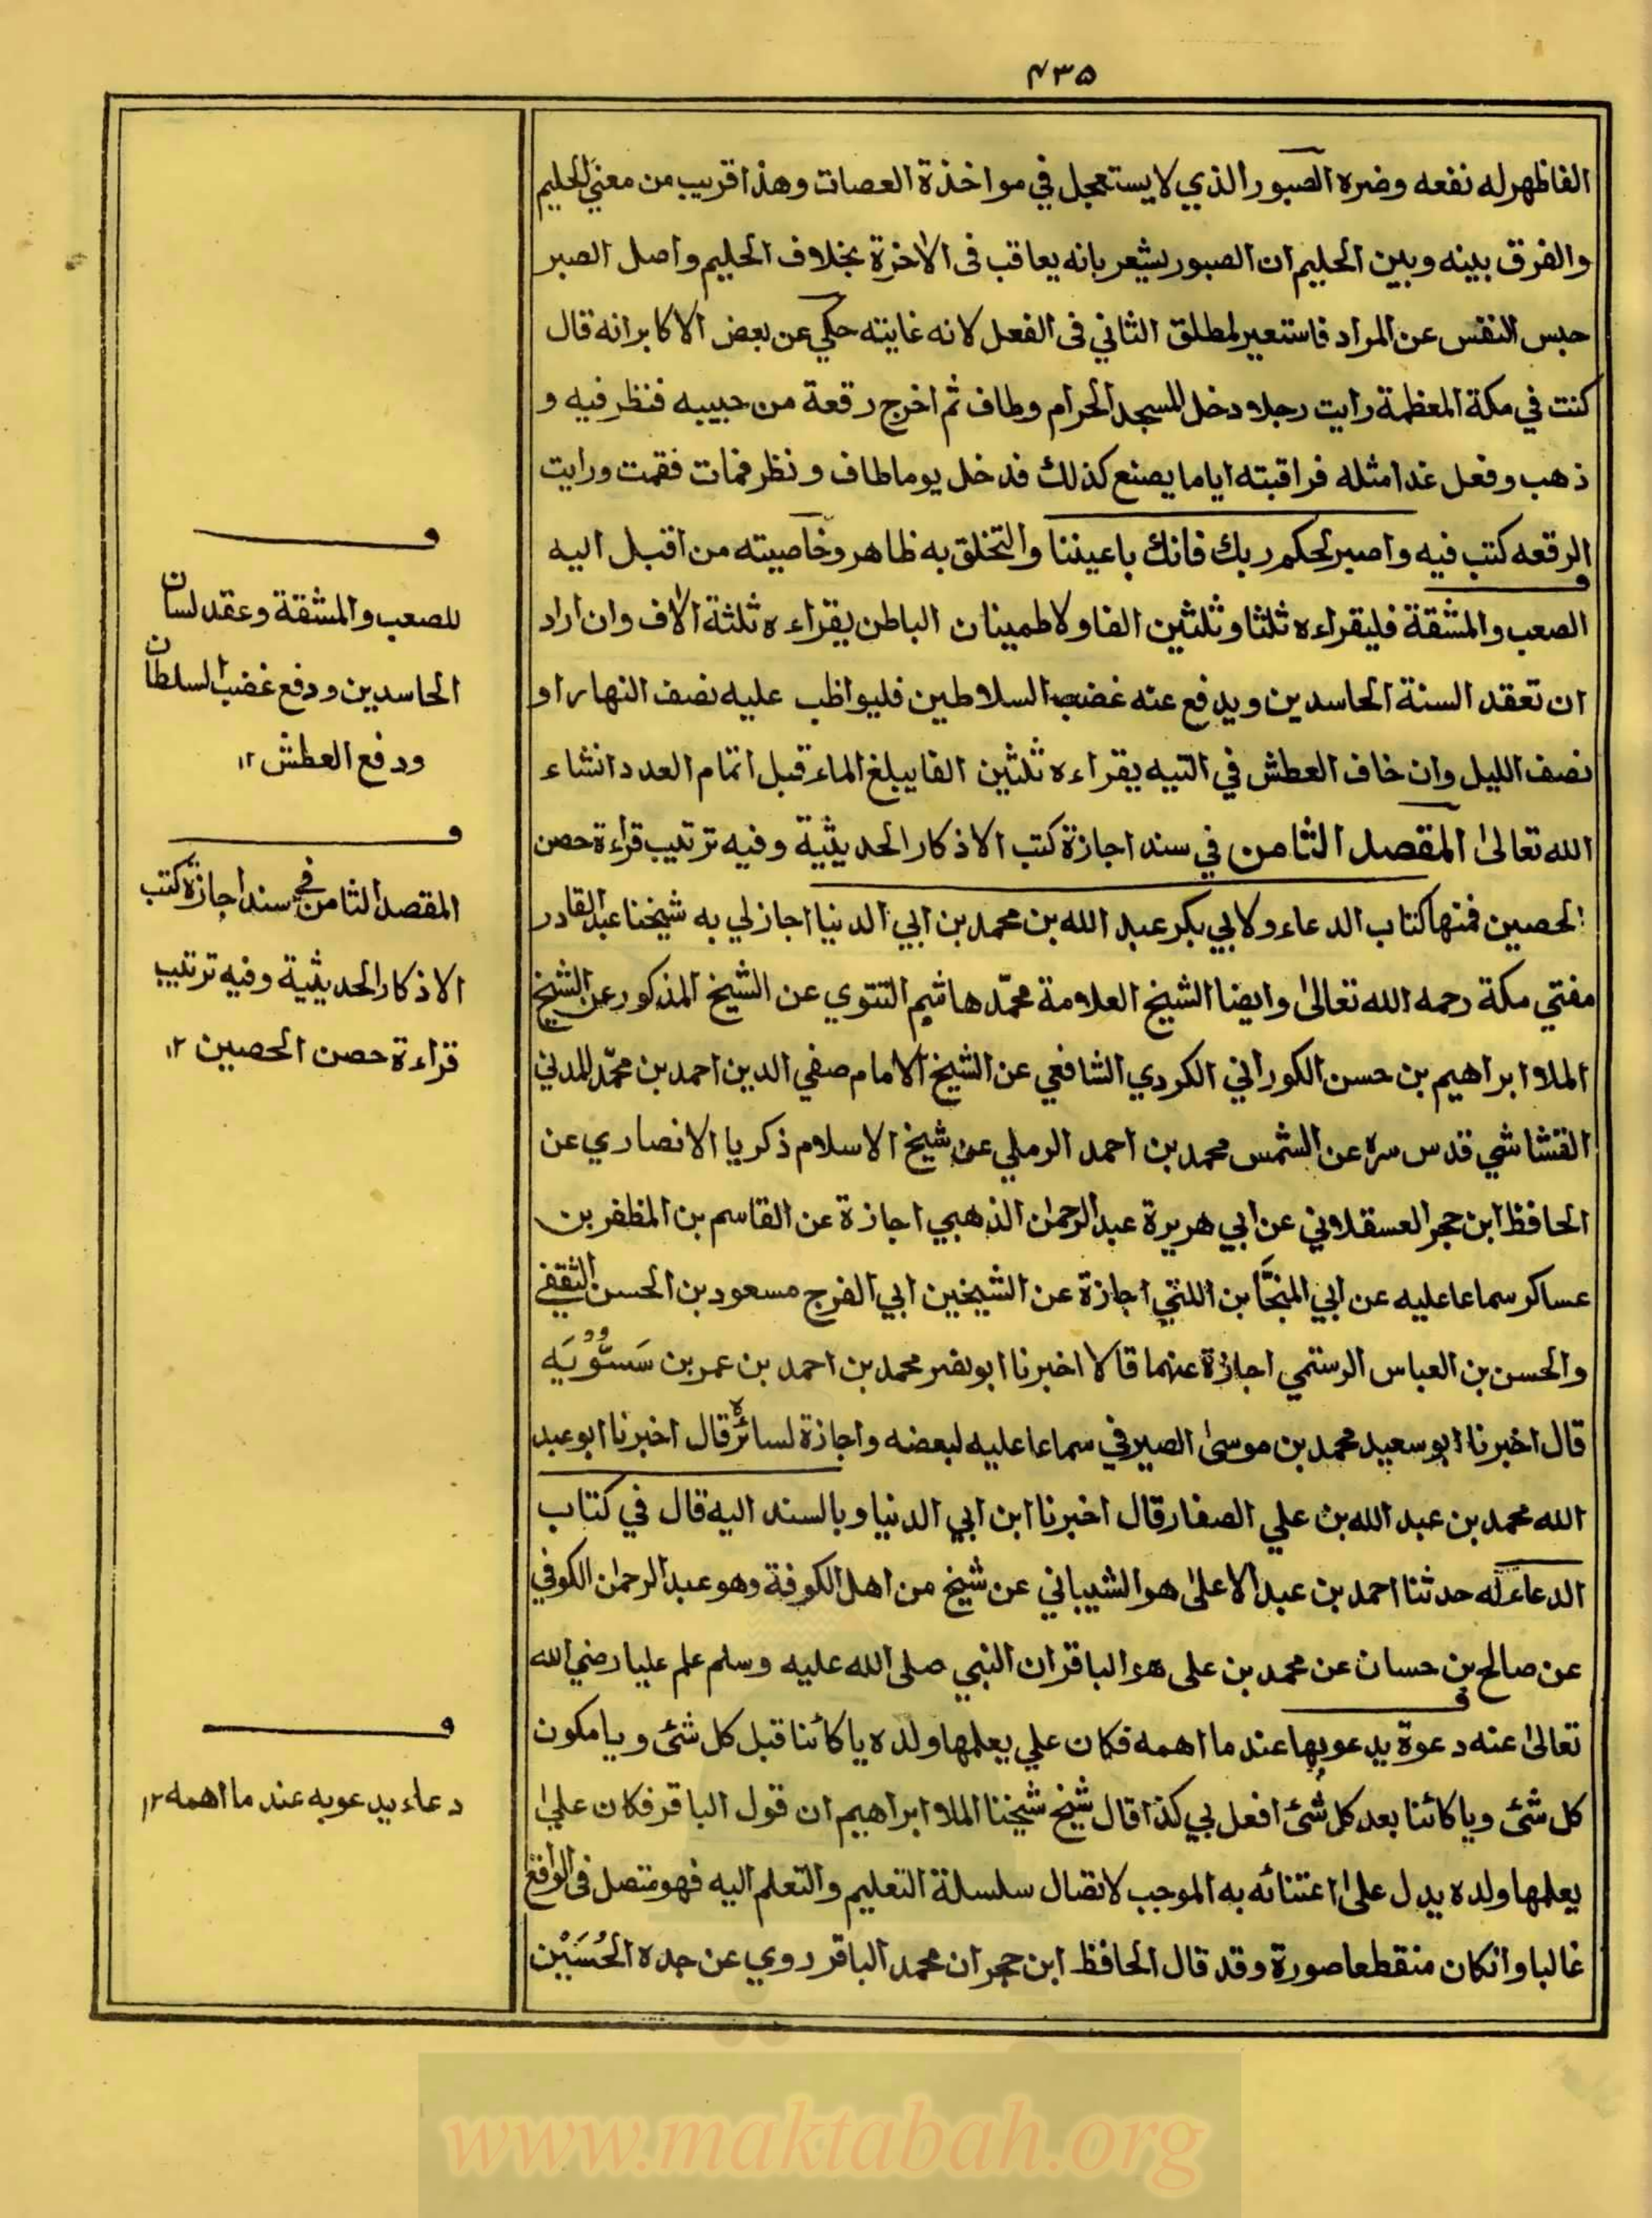 ۴۳۵
الفا ظهر له نفعه وضره الصبور الذي لا يستعجل في مواخذة العصات وهذا قريب من معني الحليم
والفرق بينه وبين الحليم ان الصبور يشعر بانه يعاقب فى الاخرة بخلاف الحليم واصل الصبر
حبس النفس عن المراد فاستعير لمطلق الثاني فى الفعل لانه غايته حكي عن بعض الاكابر انه قال
كنت في مكة المعظمة رايت رجلا دخل المسجد الحرام وطاف ثم اخرج رقعة من جيبه فنظر فيه و
ذهب وفعل غدا مثله فراقبته اياما يصنع كذلك فدخل يوما طاف ونظر فمات فقمت ورايت
الرقعه كتب فيه واصبر لحكم ربك فانك باعيننا والتخلق به ظاهر وخاصيته من اقبل اليه
الصعب والمشقة فليقراءه ثلثا وثلثين الفا ولاطمينان الباطن يقراءه ثلثة الاف وان اراد
ان تعقد السنة الحاسدين ويدفع عنه غضب السلاطين فليواظب عليه نصف النهار او
نصف الليل وان خاف العطش في التيه يقراءه ثلثين الفا يبلغ الماء قبل اتمام العدد انشاء
الله تعالىٰ المقصد الثامن في سند اجازة كتب الاذكار الحديثية وفيه ترتيب قراءة حصن
الحصين فمنها كتاب الدعاء ولابي بكر عبد الله بن محمد بن ابي الدنيا اجاز لي به شيخنا عبد القادر
مفتي مكة رحمه الله تعالىٰ وايضا الشيخ العلامة محمّد هاشم التتوي عن الشيخ المذكور عن الشيخ
الملا ابراهيم بن حسن الكوراني الكردي الشافعي عن الشيخ الامام صفي الدين احمد بن محمّد المدني
القشاشي قدس سره عن الشمس محمد بن احمد الرملي عن شيخ الاسلام ذكريا الانصاري عن
الحافظ ابن حجر العسقلاني عن ابي هريرة عبد الرحمٰن الذهبي اجازة عن القاسم بن المظفر بن
عساكر سماعا عليه عن ابي المنجّا بن اللتي اجازة عن الشيخين ابي الفرج مسعود بن الحسن الثقفي
والحسن بن العباس الرستمي اجازة عنهما قالا اخبرنا ابو نصر محمد بن احمد بن عمر بن سَسُّوْيَه
قال اخبرنا ابو سعيد محمد بن موسىٰ الصيرفي سماعا عليه لبعضه واجازة لسائره قال اخبرنا ابو عبد
الله محمد بن عبد الله بن علي الصفار قال اخبرنا ابن ابي الدنيا وبالسند اليه قال في كتاب
الدعاء له حدثنا احمد بن عبد الاعلىٰ هو الشيباني عن شيخ من اهل الكوفة وهو عبد الرحمٰن الكوفي
عن صالح بن حسان عن محمد بن على هو الباقر ان النبي صلى الله عليه وسلم علم عليا رضي الله
تعالىٰ عنه دعوة يدعو بها عند ما اهمه فكان علي يعلمها ولده يا كائنا قبل كل شئ ويا مكون
كل شئ ويا كائنا بعد كل شئ افعل بي كذا قال شيخ شيخنا الملا ابراهيم ان قول الباقر فكان علي
يعلمها ولده يدل علىٰ اعتنائه به الموجب لاتصال سلسلة التعليم والتعلم اليه فهو متصل فى الواقع
غالبا وانكان منقطعا صورة وقد قال الحافظ ابن حجر ان محمد الباقر روي عن جده الحُسَيْن
ف
للصعب والمشقة وعقد لسان
الحاسدين ودفع غضب السلطان
ودفع العطش ۱۲
ف
المقصد الثامن في سند اجازة كتب
الاذكار الحديثية وفيه ترتيب
قراءة حصن الحصين ۱۲
ف
دعاء يدعو به عند ما اهمه ۱۲
www.maktabah.org